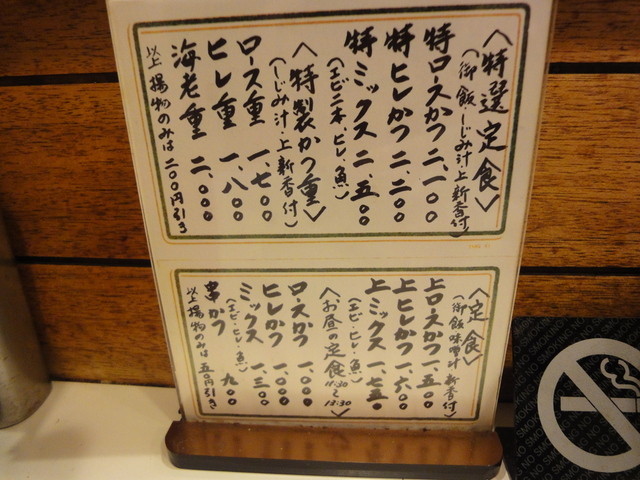 〈特選定食〉
(御飯・しじみ汁・上新香付)
特ロースかつ 二、一〇〇
特ヒレかつ 二、二〇〇
特ミックス 二、五〇〇
(エビ二本、ヒレ、魚)
〈特製かつ重〉
(しじみ汁・上新香付)
ロース重 一、七〇〇
ヒレ重 一、八〇〇
海老重 二、〇〇〇
以上揚物のみは二〇〇円引き
〈定食〉
(御飯 味噌汁 新香付)
上ロースかつ 一、五〇〇
上ヒレかつ 一、六〇〇
上ミックス 一、七五〇
(エビ・ヒレ・魚)
〈お昼の定食 11:30〜13:30〉
ロースかつ 一、〇〇〇
ヒレかつ 一、〇〇〇
ミックス 一、三〇〇
(エビ・ヒレ・魚)
串かつ 九〇〇
以上揚物のみは 五〇円引き
NO SMOKING